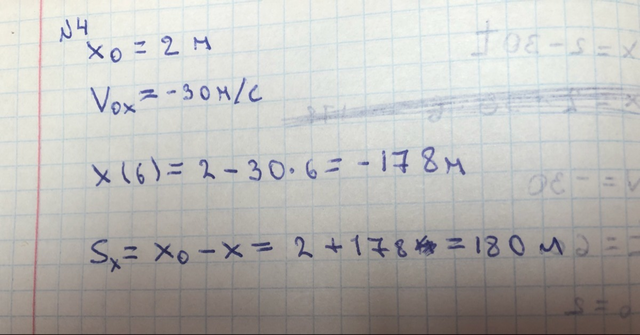 №4
x₀ = 2 м
V₀ₓ = -30м/с
x(6) = 2 - 30·6 = -178м
Sₓ = x₀ - x = 2 + 178 = 180 м